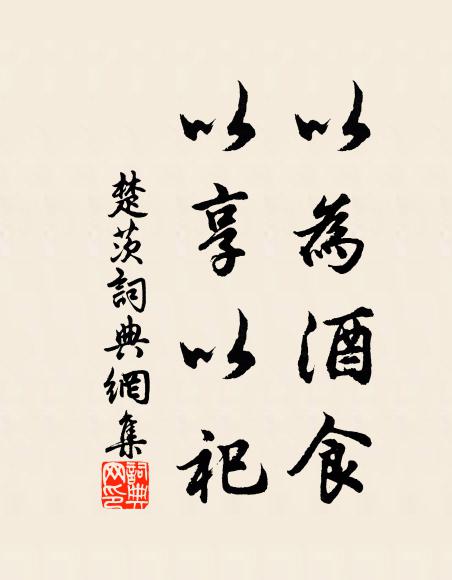 以為酒食
以享以祀
楚茨詞典網集
詞典网印